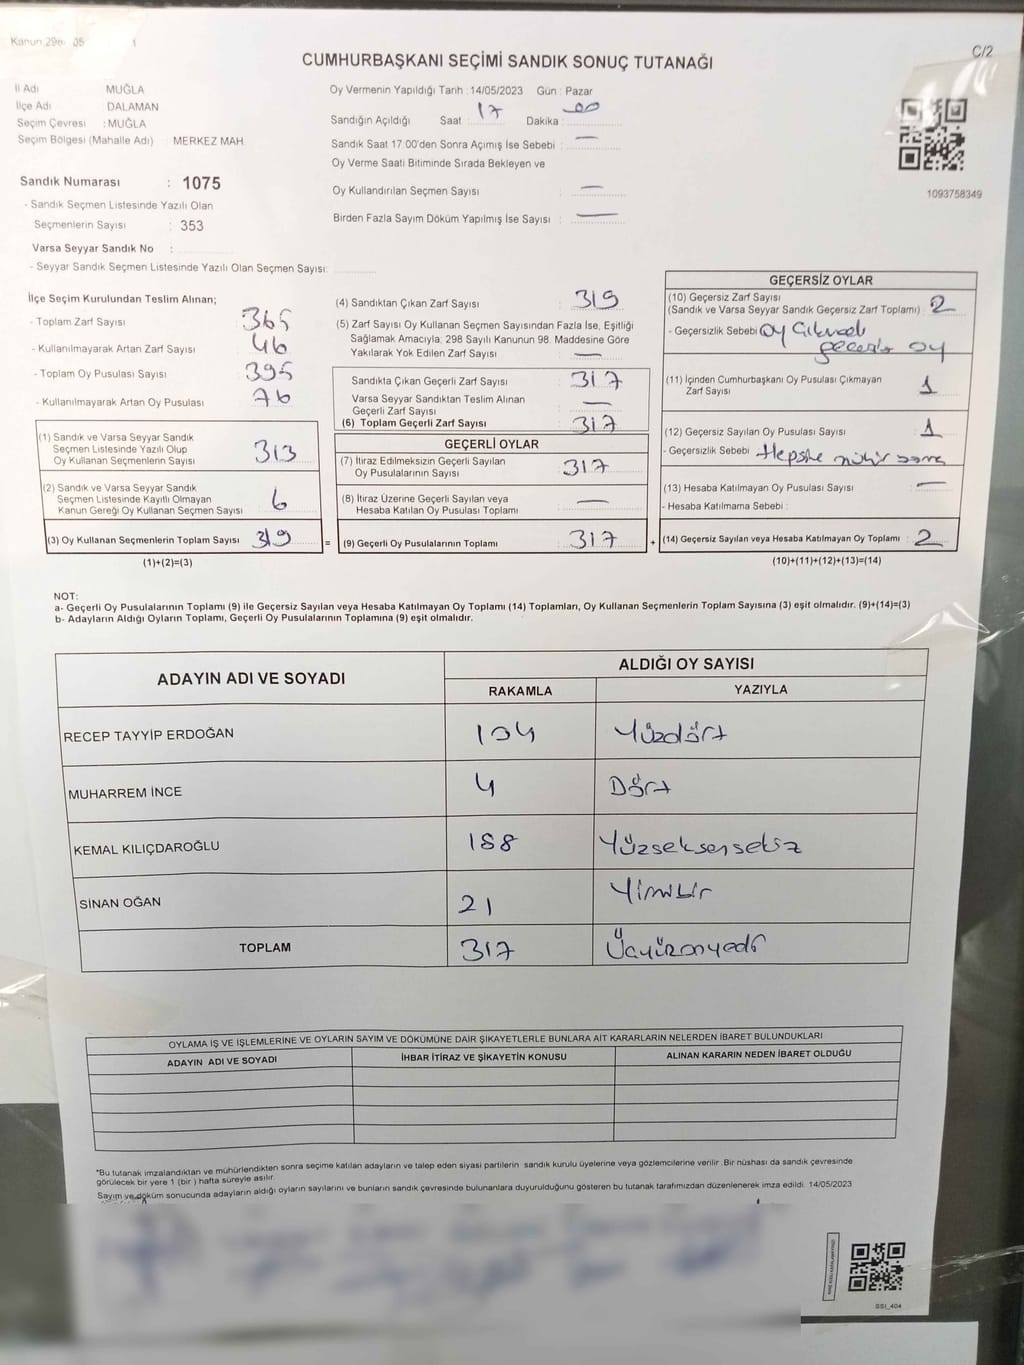 Kanun 298
CUMHURBAŞKANI SEÇİMİ SANDIK SONUÇ TUTANAĞI
C/2
İl Adı MUĞLA
İlçe Adı DALAMAN
Seçim Çevresi : MUĞLA
Seçim Bölgesi (Mahalle Adı) MERKEZ MAH.
Sandık Numarası : 1075
- Sandık Seçmen Listesinde Yazılı Olan
Seçmenlerin Sayısı : 353
Varsa Seyyar Sandık No :
- Seyyar Sandık Seçmen Listesinde Yazılı Olan Seçmen Sayısı:
Oy Vermenin Yapıldığı Tarih : 14/05/2023 Gün : Pazar
Sandığın Açıldığı Saat : 17 Dakika : 00
Sandık Saat 17:00'den Sonra Açımış İse Sebebi : —
Oy Verme Saati Bitiminde Sırada Bekleyen ve
Oy Kullandırılan Seçmen Sayısı : —
Birden Fazla Sayım Döküm Yapılmış İse Sayısı : —
1093758349
İlçe Seçim Kurulundan Teslim Alınan;
- Toplam Zarf Sayısı : 365
- Kullanılmayarak Artan Zarf Sayısı : 46
- Toplam Oy Pusulası Sayısı : 395
- Kullanılmayarak Artan Oy Pusulası : 76
(1) Sandık ve Varsa Seyyar Sandık
Seçmen Listesinde Yazılı Olup
Oy Kullanan Seçmenlerin Sayısı : 313
(2) Sandık ve Varsa Seyyar Sandık
Seçmen Listesinde Kayıtlı Olmayan
Kanun Gereği Oy Kullanan Seçmen Sayısı : 6
(3) Oy Kullanan Seçmenlerin Toplam Sayısı : 319 =
(1)+(2)=(3)
(4) Sandıktan Çıkan Zarf Sayısı : 319
(5) Zarf Sayısı Oy Kullanan Seçmen Sayısından Fazla İse, Eşitliği
Sağlamak Amacıyla; 298 Sayılı Kanunun 98. Maddesine Göre
Yakılarak Yok Edilen Zarf Sayısı : —
Sandıkta Çıkan Geçerli Zarf Sayısı : 317
Varsa Seyyar Sandıktan Teslim Alınan
Geçerli Zarf Sayısı : —
(6) Toplam Geçerli Zarf Sayısı : 317
GEÇERLİ OYLAR
(7) İtiraz Edilmeksizin Geçerli Sayılan
Oy Pusulalarının Sayısı : 317
(8) İtiraz Üzerine Geçerli Sayılan veya
Hesaba Katılan Oy Pusulası Toplamı : —
(9) Geçerli Oy Pusulalarının Toplamı : 317 +
GEÇERSİZ OYLAR
(10) Geçersiz Zarf Sayısı
(Sandık ve Varsa Seyyar Sandık Geçersiz Zarf Toplamı) : 2
- Geçersizlik Sebebi : oy
oy
(11) İçinden Cumhurbaşkanı Oy Pusulası Çıkmayan
Zarf Sayısı : 1
(12) Geçersiz Sayılan Oy Pusulası Sayısı : 1
- Geçersizlik Sebebi :
(13) Hesaba Katılmayan Oy Pusulası Sayısı : —
- Hesaba Katılmama Sebebi :
(14) Geçersiz Sayılan veya Hesaba Katılmayan Oy Toplamı : 2
(10)+(11)+(12)+(13)=(14)
NOT:
a- Geçerli Oy Pusulalarının Toplamı (9) ile Geçersiz Sayılan veya Hesaba Katılmayan Oy Toplamı (14) Toplamları, Oy Kullanan Seçmenlerin Toplam Sayısına (3) eşit olmalıdır. (9)+(14)=(3)
b- Adayların Aldığı Oyların Toplamı, Geçerli Oy Pusulalarının Toplamına (9) eşit olmalıdır.
ADAYIN ADI VE SOYADI ALDIĞI OY SAYISI
RAKAMLA YAZIYLA
RECEP TAYYİP ERDOĞAN 104 Yüzdört
MUHARREM İNCE 4 Dört
KEMAL KILIÇDAROĞLU 188 Yüzseksensekiz
SİNAN OĞAN 21 Yirmibir
TOPLAM 317 Üçyüzonyedi
OYLAMA İŞ VE İŞLEMLERİNE VE OYLARIN SAYIM VE DÖKÜMÜNE DAİR ŞİKAYETLERLE BUNLARA AİT KARARLARIN NELERDEN İBARET BULUNDUKLARI
ADAYIN ADI VE SOYADI İHBAR İTİRAZ VE ŞİKAYETİN KONUSU ALINAN KARARIN NEDEN İBARET OLDUĞU
*Bu tutanak imzalandıktan ve mühürlendikten sonra seçime katılan adayların ve talep eden siyasi partilerin sandık kurulu üyelerine veya gözlemcilerine verilir. Bir nüshası da sandık çevresinde
görülecek bir yere 1 (bir) hafta süreyle asılır.
Sayım ve döküm sonucunda adayların aldığı oyların sayılarını ve bunların sandık çevresinde bulunanlara duyurulduğunu gösteren bu tutanak tarafımızdan düzenlenerek imza edildi. 14/05/2023
SSI_404